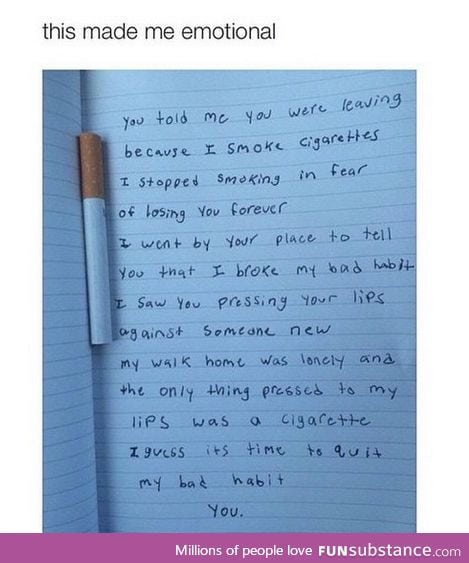 this made me emotional
You told me you were leaving
because I smoke cigarettes
I stopped smoking in fear
of losing you forever
I went by your place to tell
you that I broke my bad habit
I saw you pressing your lips
against someone new
my walk home was lonely and
the only thing pressed to my
lips was a cigarette
I guess its time to quit
my bad habit
You.
Millions of people love FUNsubstance.com